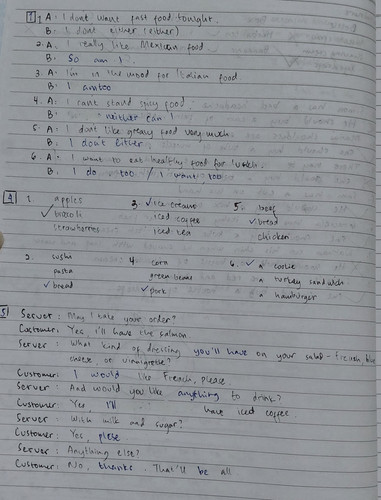 1 1. A: I dont want fast food tonight.
B: I dont either (either)
2. A: I really like Mexican food.
B: So am I
3. A: I'm in the mood for Italian food.
B: I am too
4. A: I cant stand spicy food
B: neither can I
5. A: I dont like greasy food very much.
B: I don't either
6. A: I want to eat healthy food for lunch.
B: I do too / I want, too
4 1. apples 3. ✓ ice cream 5. beef
✓ broccoli iced coffee ✓ bread
strawberries iced tea chicken
2. sushi 4. corn 6. ✓ a cookie
pasta green beans a turkey sandwich
✓ bread ✓ pork a hamburger
5 Server: May I take your order?
Customer: Yes, I'll have the salmon.
Server: What kind of dressing you'll have on your salad - French blue
cheese or vinaigrette?
Customer: I would like French, please.
Server: And would you like anything to drink?
Customer: Yes, I'll have iced coffee.
Server: With milk and sugar?
Customer: Yes, plese
Server: Anything else?
Customer: No, thanks. That'll be all